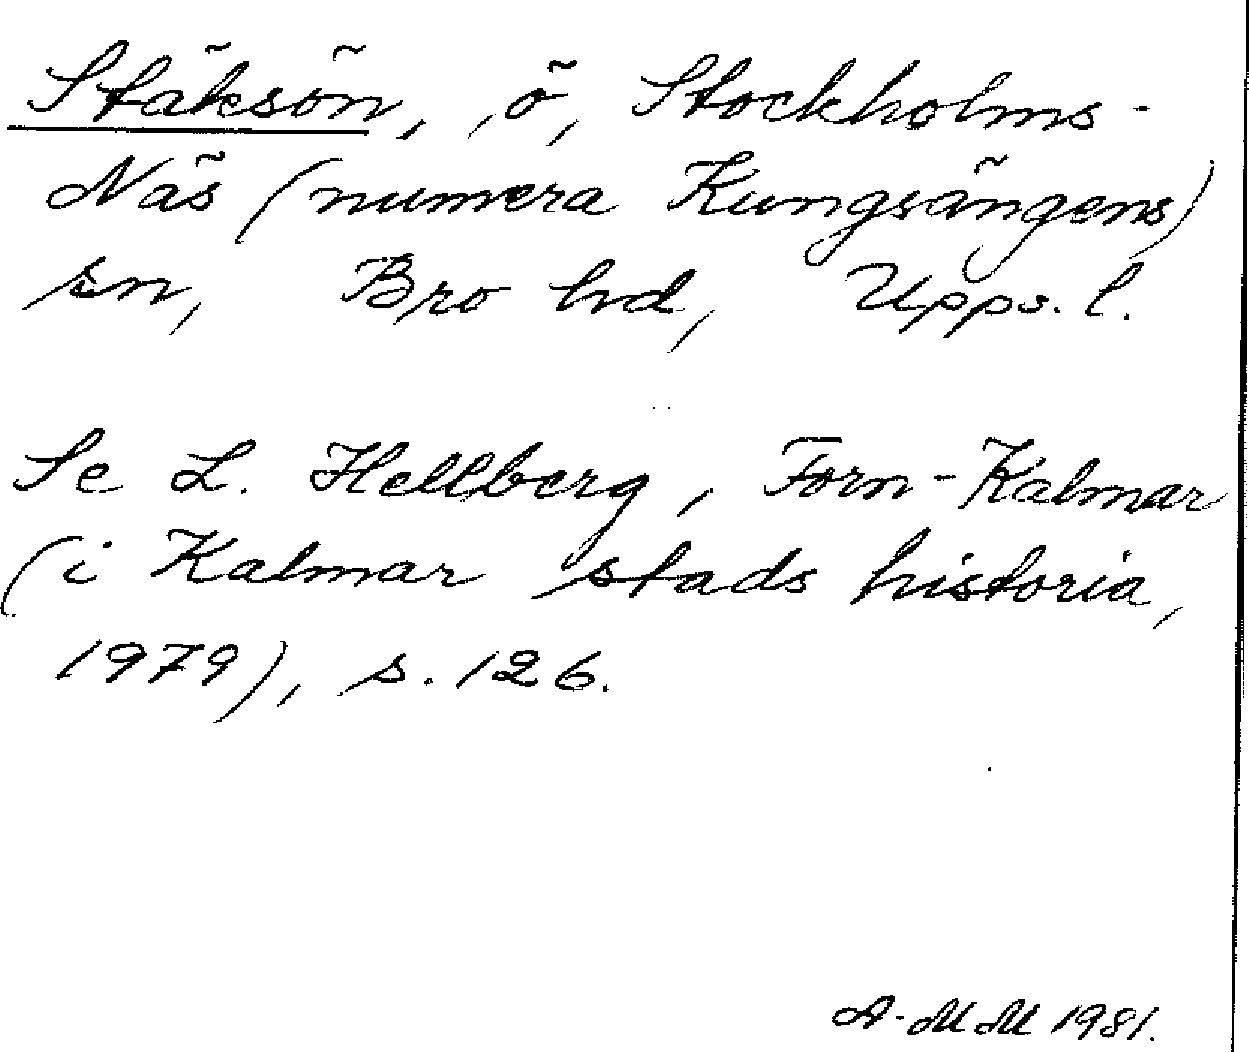 Stäksön, , ö, Stockholms-
Näs (numera Kungsängens)
sn, Bro hd, Upps. l.
Se L. Hellberg, Forn-Kalmar
(i Kalmar stads historia,
1979), s. 126.
A-MM 1981.